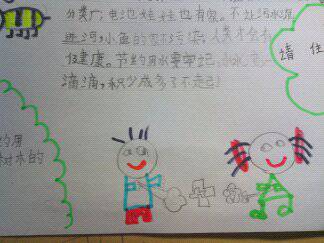 分类广,电池娃娃也有家。不让污水流
进河,小鱼的家不污染,人类才会有
健康。节约用水要牢记,
滴滴,积少成多了不起!
请 住
约用
树木的